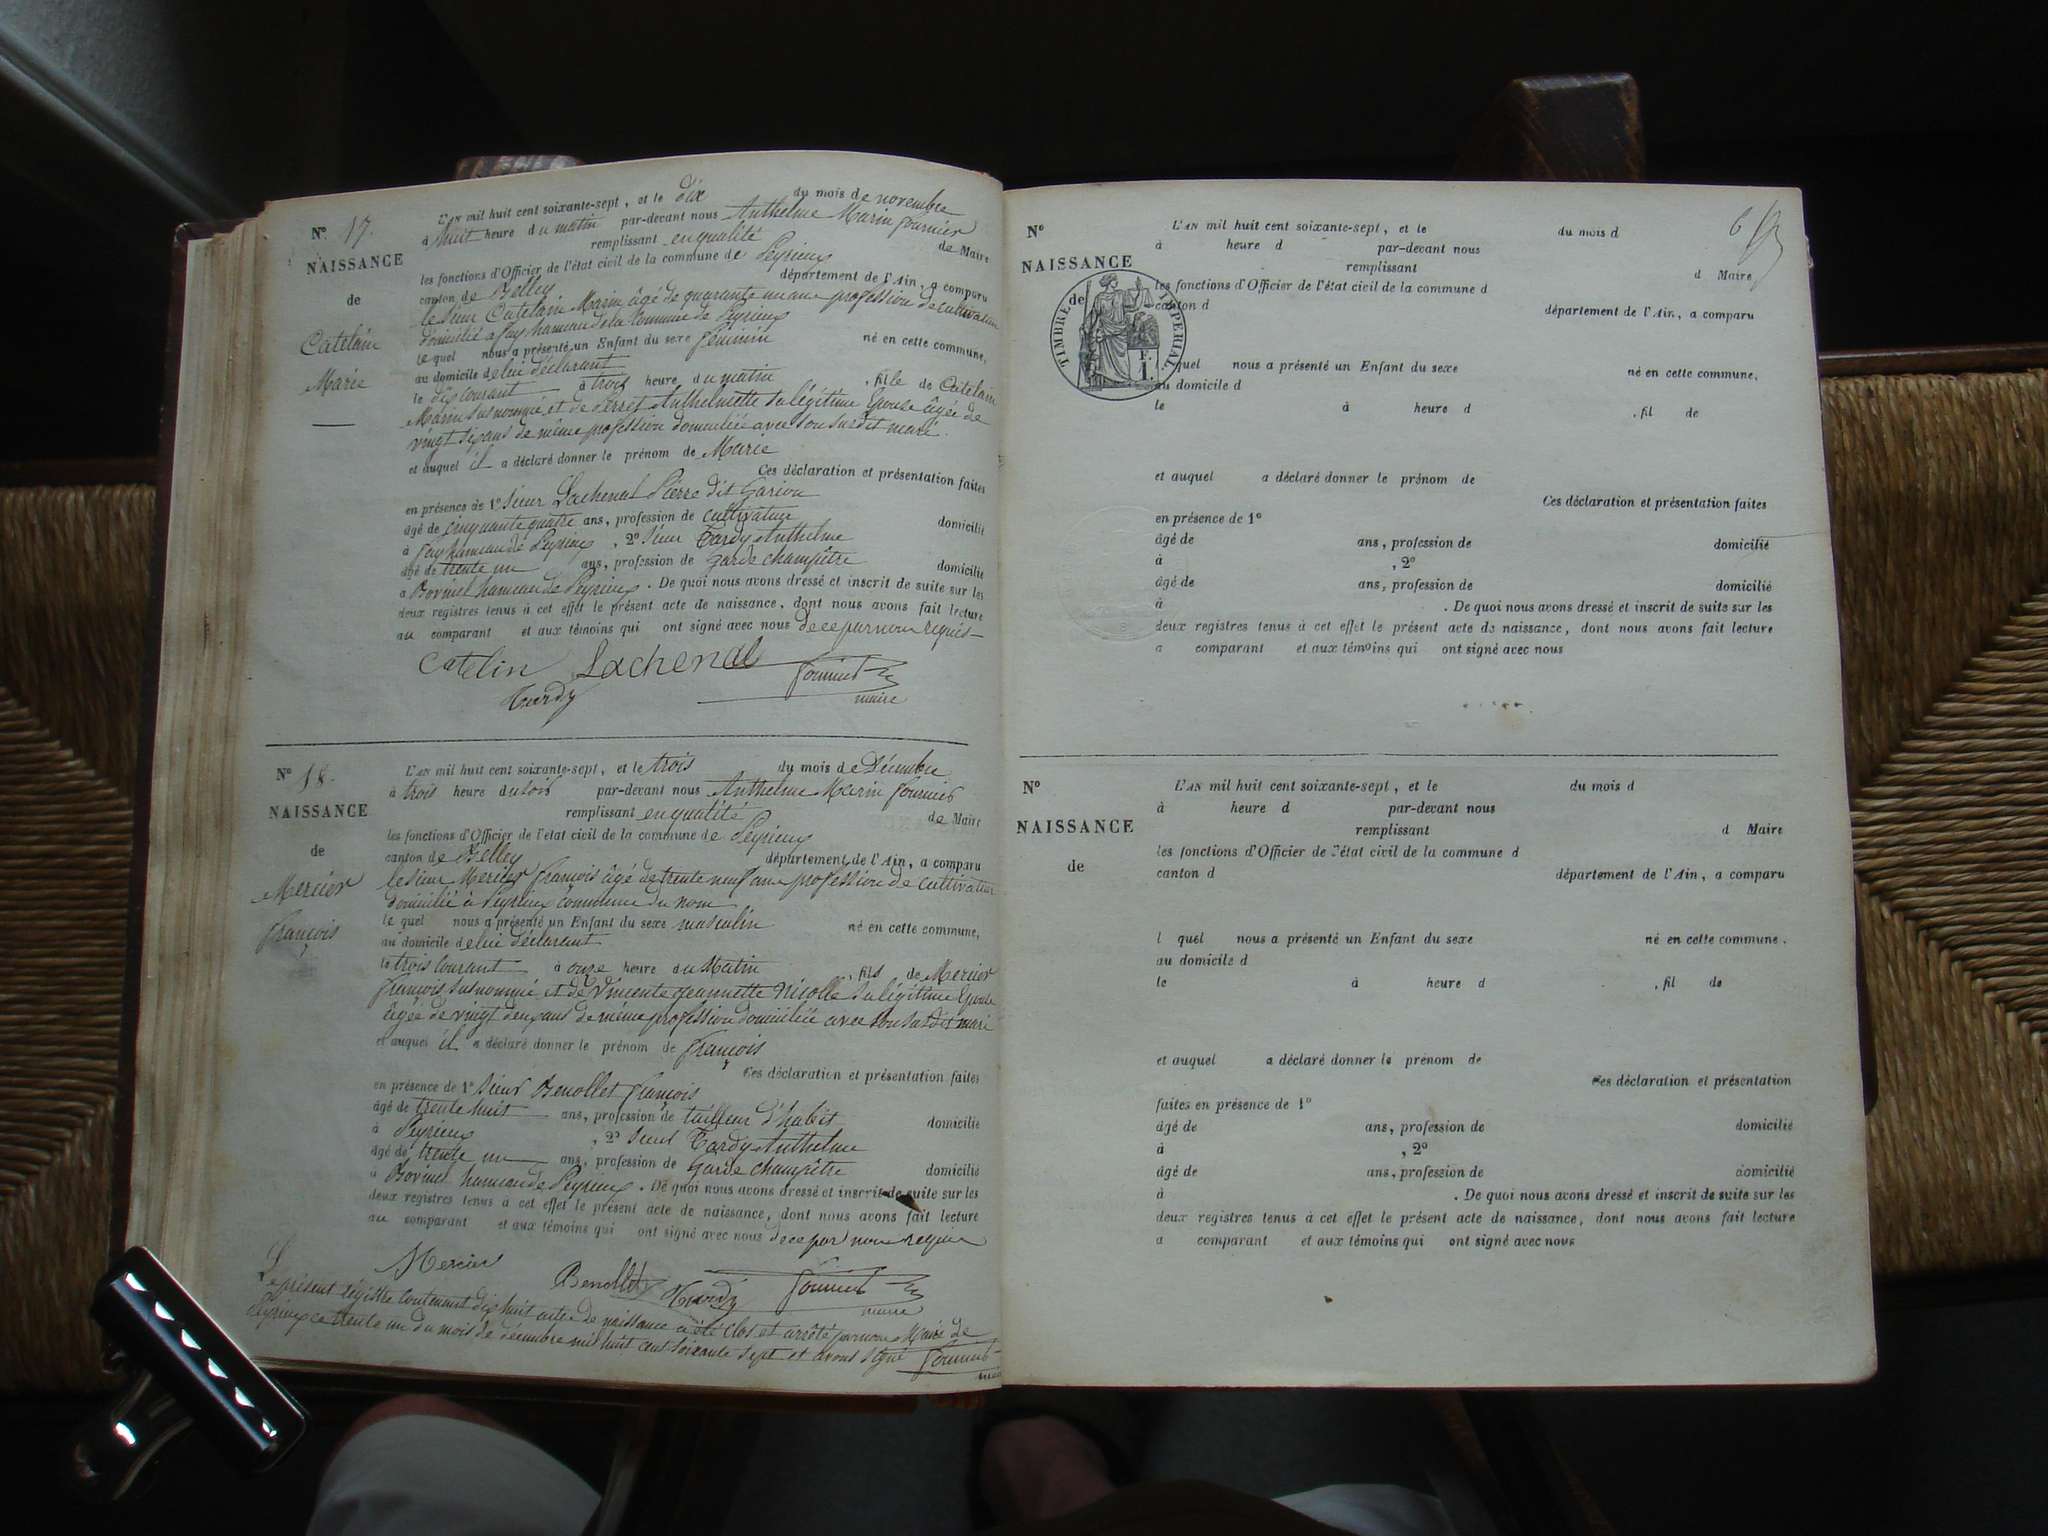 Nº 17.
NAISSANCE
de
Catelain
Marie
L'AN mil huit cent soixante-sept, et le dix du mois de novembre
à huit heure du matin par-devant nous Anthelme Marin fournier
remplissant en qualité de Maire
les fonctions d'Officier de l'état civil de la commune de Peyrieux
canton de Belley département de l'Ain, a comparu
le sieur Catelain Marin âgé de quarante un ans profession de cultivateur
domicilié a fay hameau de la Commune de Peyrieux
le quel nous a présenté un Enfant du sexe féminin né en cette commune,
au domicile de lui déclarant
le dix courant à trois heure du matin , fille de Catelain
Marin susnommé et de Perret Anthelmette sa légitime Epouse âgée de
vingt six ans de même profession domiciliée avec son susdit mari.
et auquel il a déclaré donner le prénom de Marie
Ces déclaration et présentation faites
en présence de 1º Sieur Lachenal Pierre dit
âgé de cinquante quatre ans, profession de cultivateur domicilié
à fay hameau de Peyrieux , 2º Sieur Tardy Anthelme
âgé de trente un ans, profession de garde champêtre domicilié
à hameau de Peyrieux . De quoi nous avons dressé et inscrit de suite sur les
deux registres tenus à cet effet le présent acte de naissance, dont nous avons fait lecture
au comparant et aux témoins qui ont signé avec nous de ce par nous requis
Catelin Lachenal fournier
Tardy maire
Nº 18.
NAISSANCE
de
Mercier
françois
L'AN mil huit cent soixante-sept, et le trois du mois de Décembre
à trois heure du soir par-devant nous Anthelme Marin fournier
remplissant en qualité de Maire
les fonctions d'Officier de l'état civil de la commune de Peyrieux
canton de Belley département de l'Ain, a comparu
le sieur Mercier françois âgé de trente neuf ans profession de cultivateur
domicilié à Peyrieux commune du nom
le quel nous a présenté un Enfant du sexe masculin né en cette commune,
au domicile de lui déclarant
le trois Courant à onze heure du Matin , fils de Mercier
françois susnommé et de Vincente Jeannette Nicolle sa légitime Epouse
âgée de vingt deux ans de même profession domiciliée avec son susdit mari
et auquel il a déclaré donner le prénom de françois
Ces déclaration et présentation faites
en présence de 1º Sieur Benollet françois
âgé de trente huit ans, profession de tailleur d'habit domicilié
à Peyrieux , 2º Sieur Tardy Anthelme
âgé de trente un ans, profession de garde champêtre domicilié
à hameau de Peyrieux . De quoi nous avons dressé et inscrit de suite sur les
deux registres tenus à cet effet le présent acte de naissance, dont nous avons fait lecture
au comparant et aux témoins qui ont signé avec nous de ce par nous requis
Mercier Benollet Tardy fournier
maire
Le présent régistre contenant dix huit actes de naissance a été clos et arrêté par nous Maire de
Peyrieux ce trente un du mois de décembre mil huit cent soixante sept et avons signé fournier
maire
6
Nº
NAISSANCE
de
TIMBRE IMPERIAL
F.
1.
L'AN mil huit cent soixante-sept, et le du mois d
à heure d par-devant nous
remplissant d Maire
les fonctions d'Officier de l'état civil de la commune d
canton d département de l'Ain, a comparu
quel nous a présenté un Enfant du sexe né en cette commune,
au domicile d
le à heure d , fil de
et auquel a déclaré donner le prénom de
Ces déclaration et présentation faites
en présence de 1º
âgé de ans, profession de domicilié
à , 2º
âgé de ans, profession de domicilié
à . De quoi nous avons dressé et inscrit de suite sur les
deux registres tenus à cet effet le présent acte de naissance, dont nous avons fait lecture
a comparant et aux témoins qui ont signé avec nous
Nº
NAISSANCE
de
L'AN mil huit cent soixante-sept, et le du mois d
à heure d par-devant nous
remplissant d Maire
les fonctions d'Officier de l'état civil de la commune d
canton d département de l'Ain, a comparu
l quel nous a présenté un Enfant du sexe né en cette commune.
au domicile d
le à heure d , fil de
et auquel a déclaré donner le prénom de
Ces déclaration et présentation
faites en présence de 1º
âgé de ans, profession de domicilié
à , 2º
âgé de ans, profession de domicilié
à . De quoi nous avons dressé et inscrit de suite sur les
deux registres tenus à cet effet le présent acte de naissance, dont nous avons fait lecture
a comparant et aux témoins qui ont signé avec nous